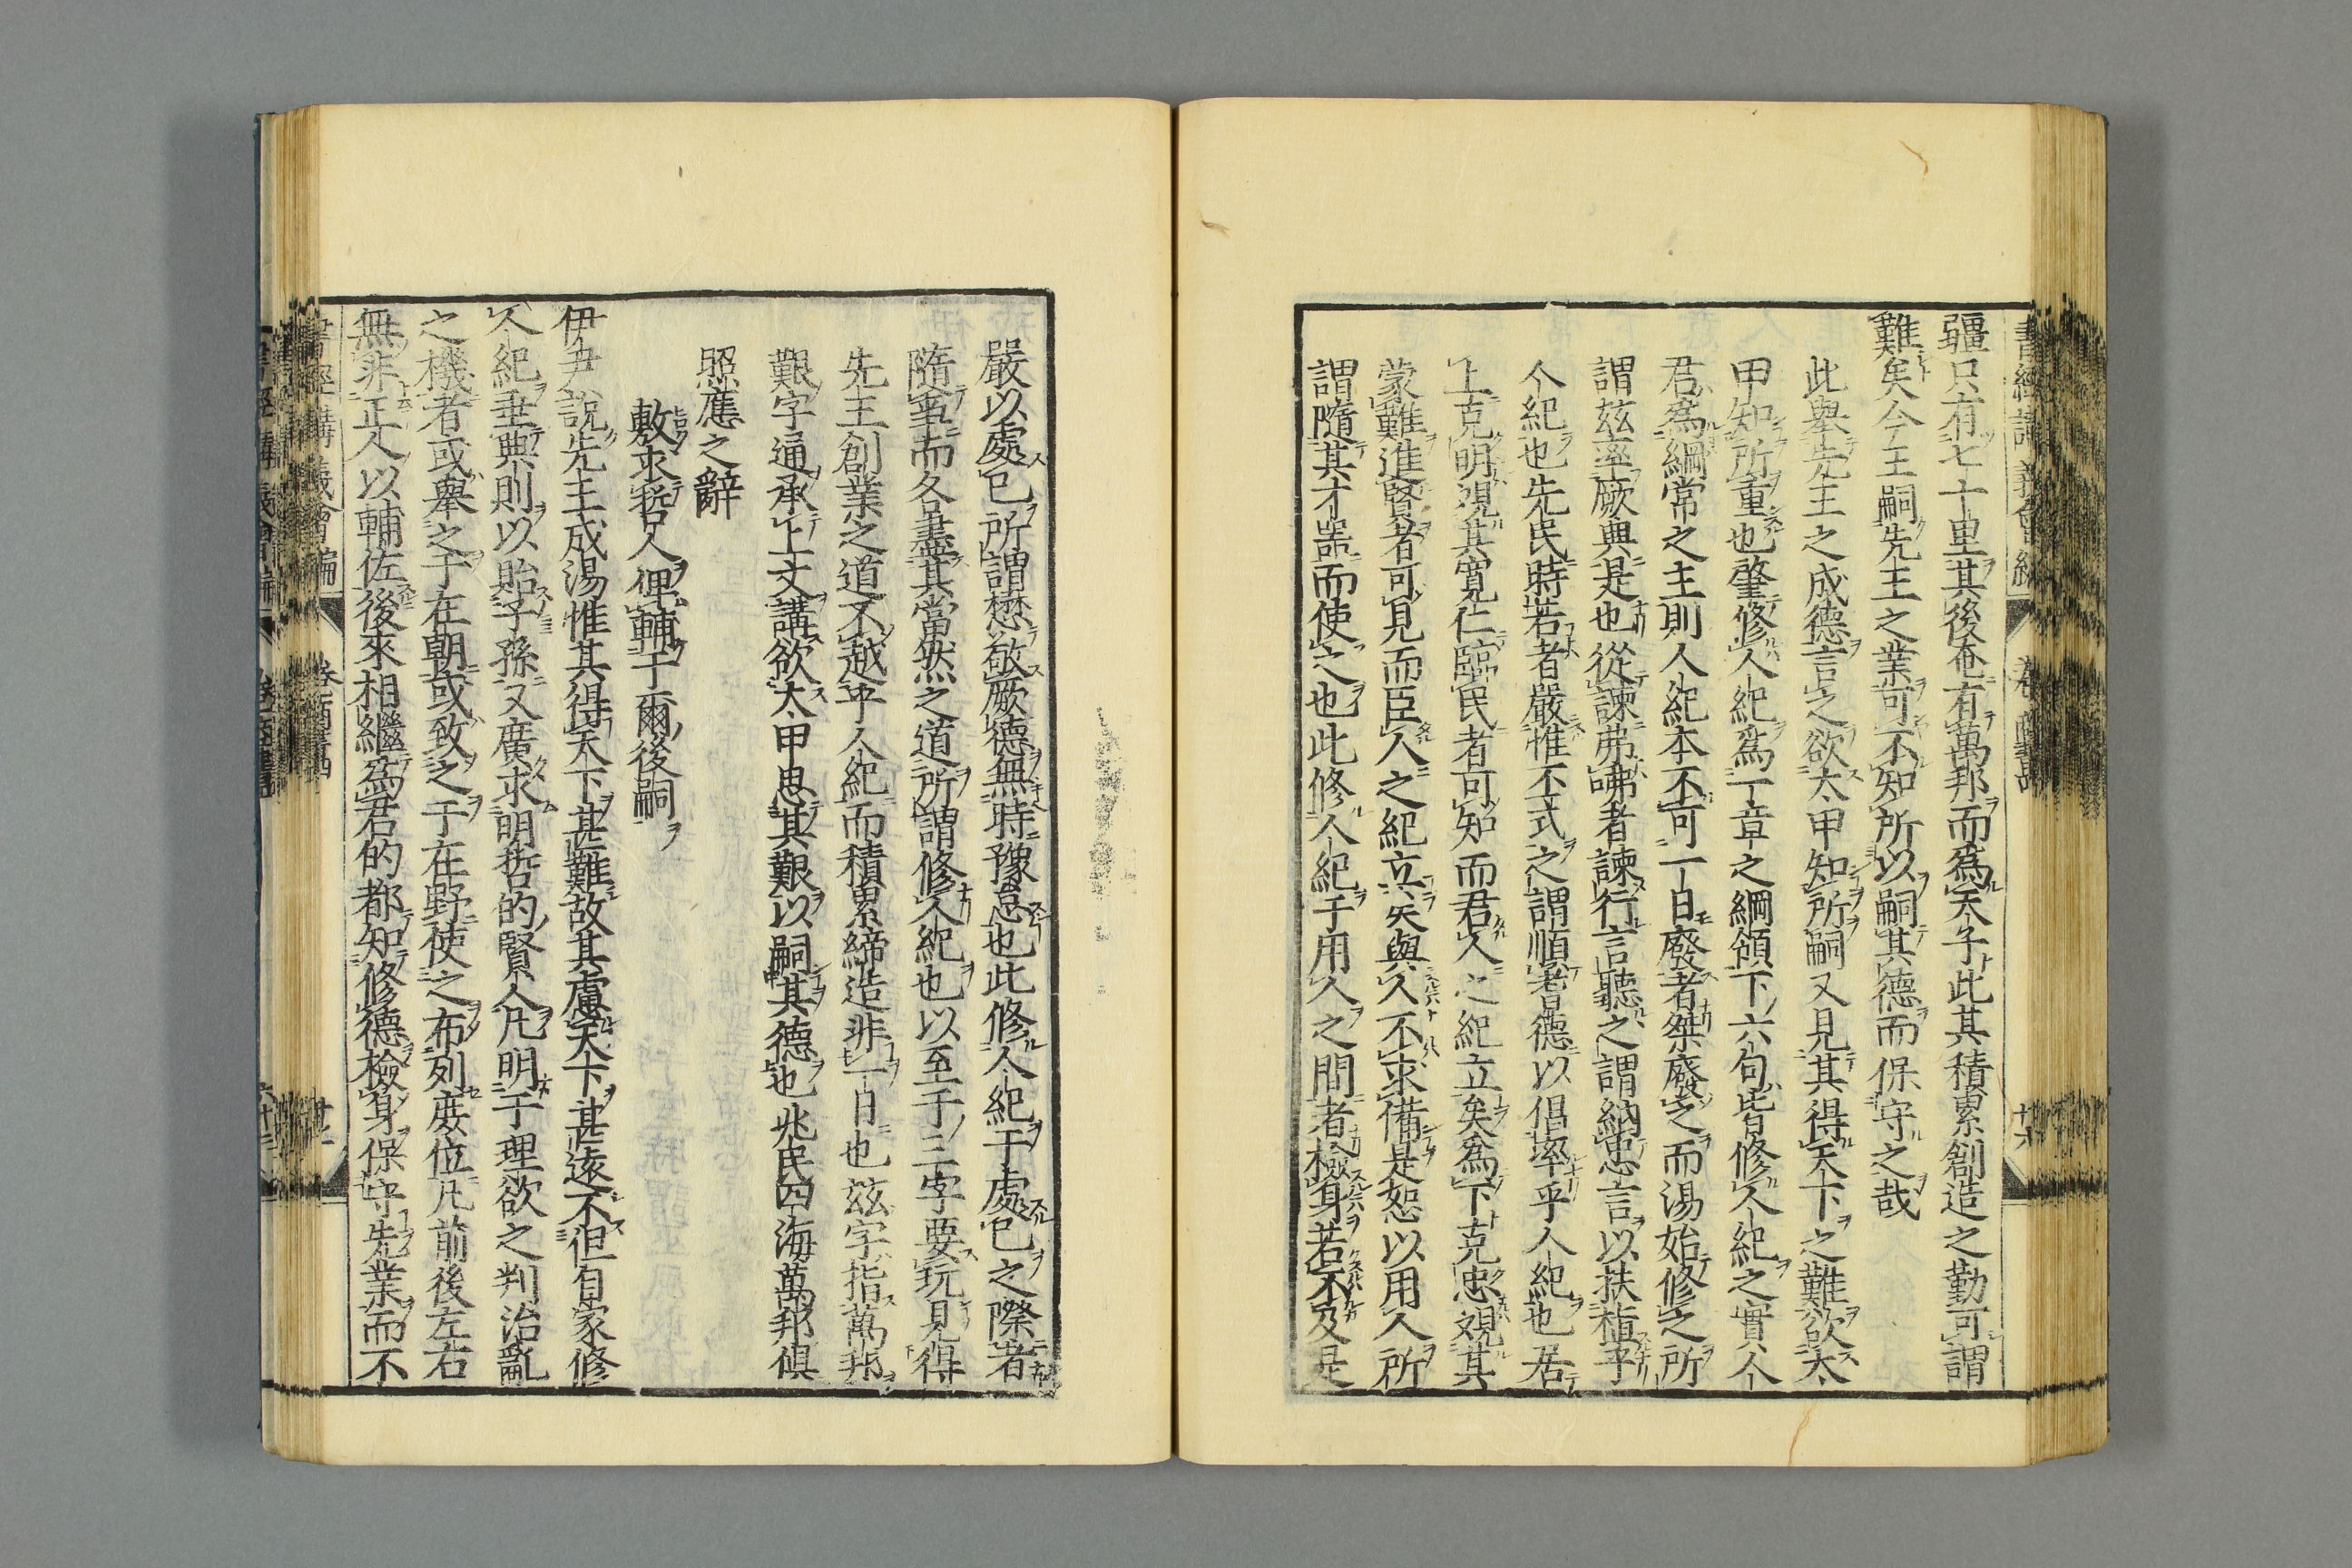 疆只有七十里其後奄有萬邦而爲天子此其積累創造之勤可謂
難矣今王嗣先王之業可不知所以嗣其德而保守之哉
此舉先王之成德言之欲太甲知所嗣又見其得天下之難欲太
甲知所重也肇修人紀爲一章之綱領下六句皆修人紀之實人
君爲綱常之主則人紀本不可一日廢者桀廢之而湯始修之所
謂茲率厥典是也從諫弗咈者諫行言聽之謂納忠言以扶植乎
人紀也先民時若者嚴惟丕式之謂順耆德以倡率乎人紀也居
上克明視其寬仁臨民者可知而君人之紀立矣爲下克忠視其
蒙難進賢者可見而臣人之紀立矣與人不求備是恕以用人所
謂隨其才器而使之也此修人紀于用人之間者檢身若不及是
嚴以處己所謂懋敬厥德無時豫怠也此修人紀于處己之際者
隨事而各盡其當然之道所謂修人紀也以至于三字要玩見得
先王創業之道不越乎人紀而積累締造非一日也茲字指萬邦
艱字通承上文講欲太甲思其艱以嗣其德也兆民四海萬邦俱
照應之辭
敷求哲人俾輔于爾後嗣
伊尹說先王成湯惟其得天下甚難故其慮天下甚遠不但自家修
人紀垂典則以貽子孫又廣求明哲的賢人凡明于理欲之判治亂
之機者或舉之于在朝或致之于在野使之布列庶位凡前後左右
無非正人以輔佐後來相繼爲君的都知修德檢身保守先業而不
書經講義會編
卷
商書